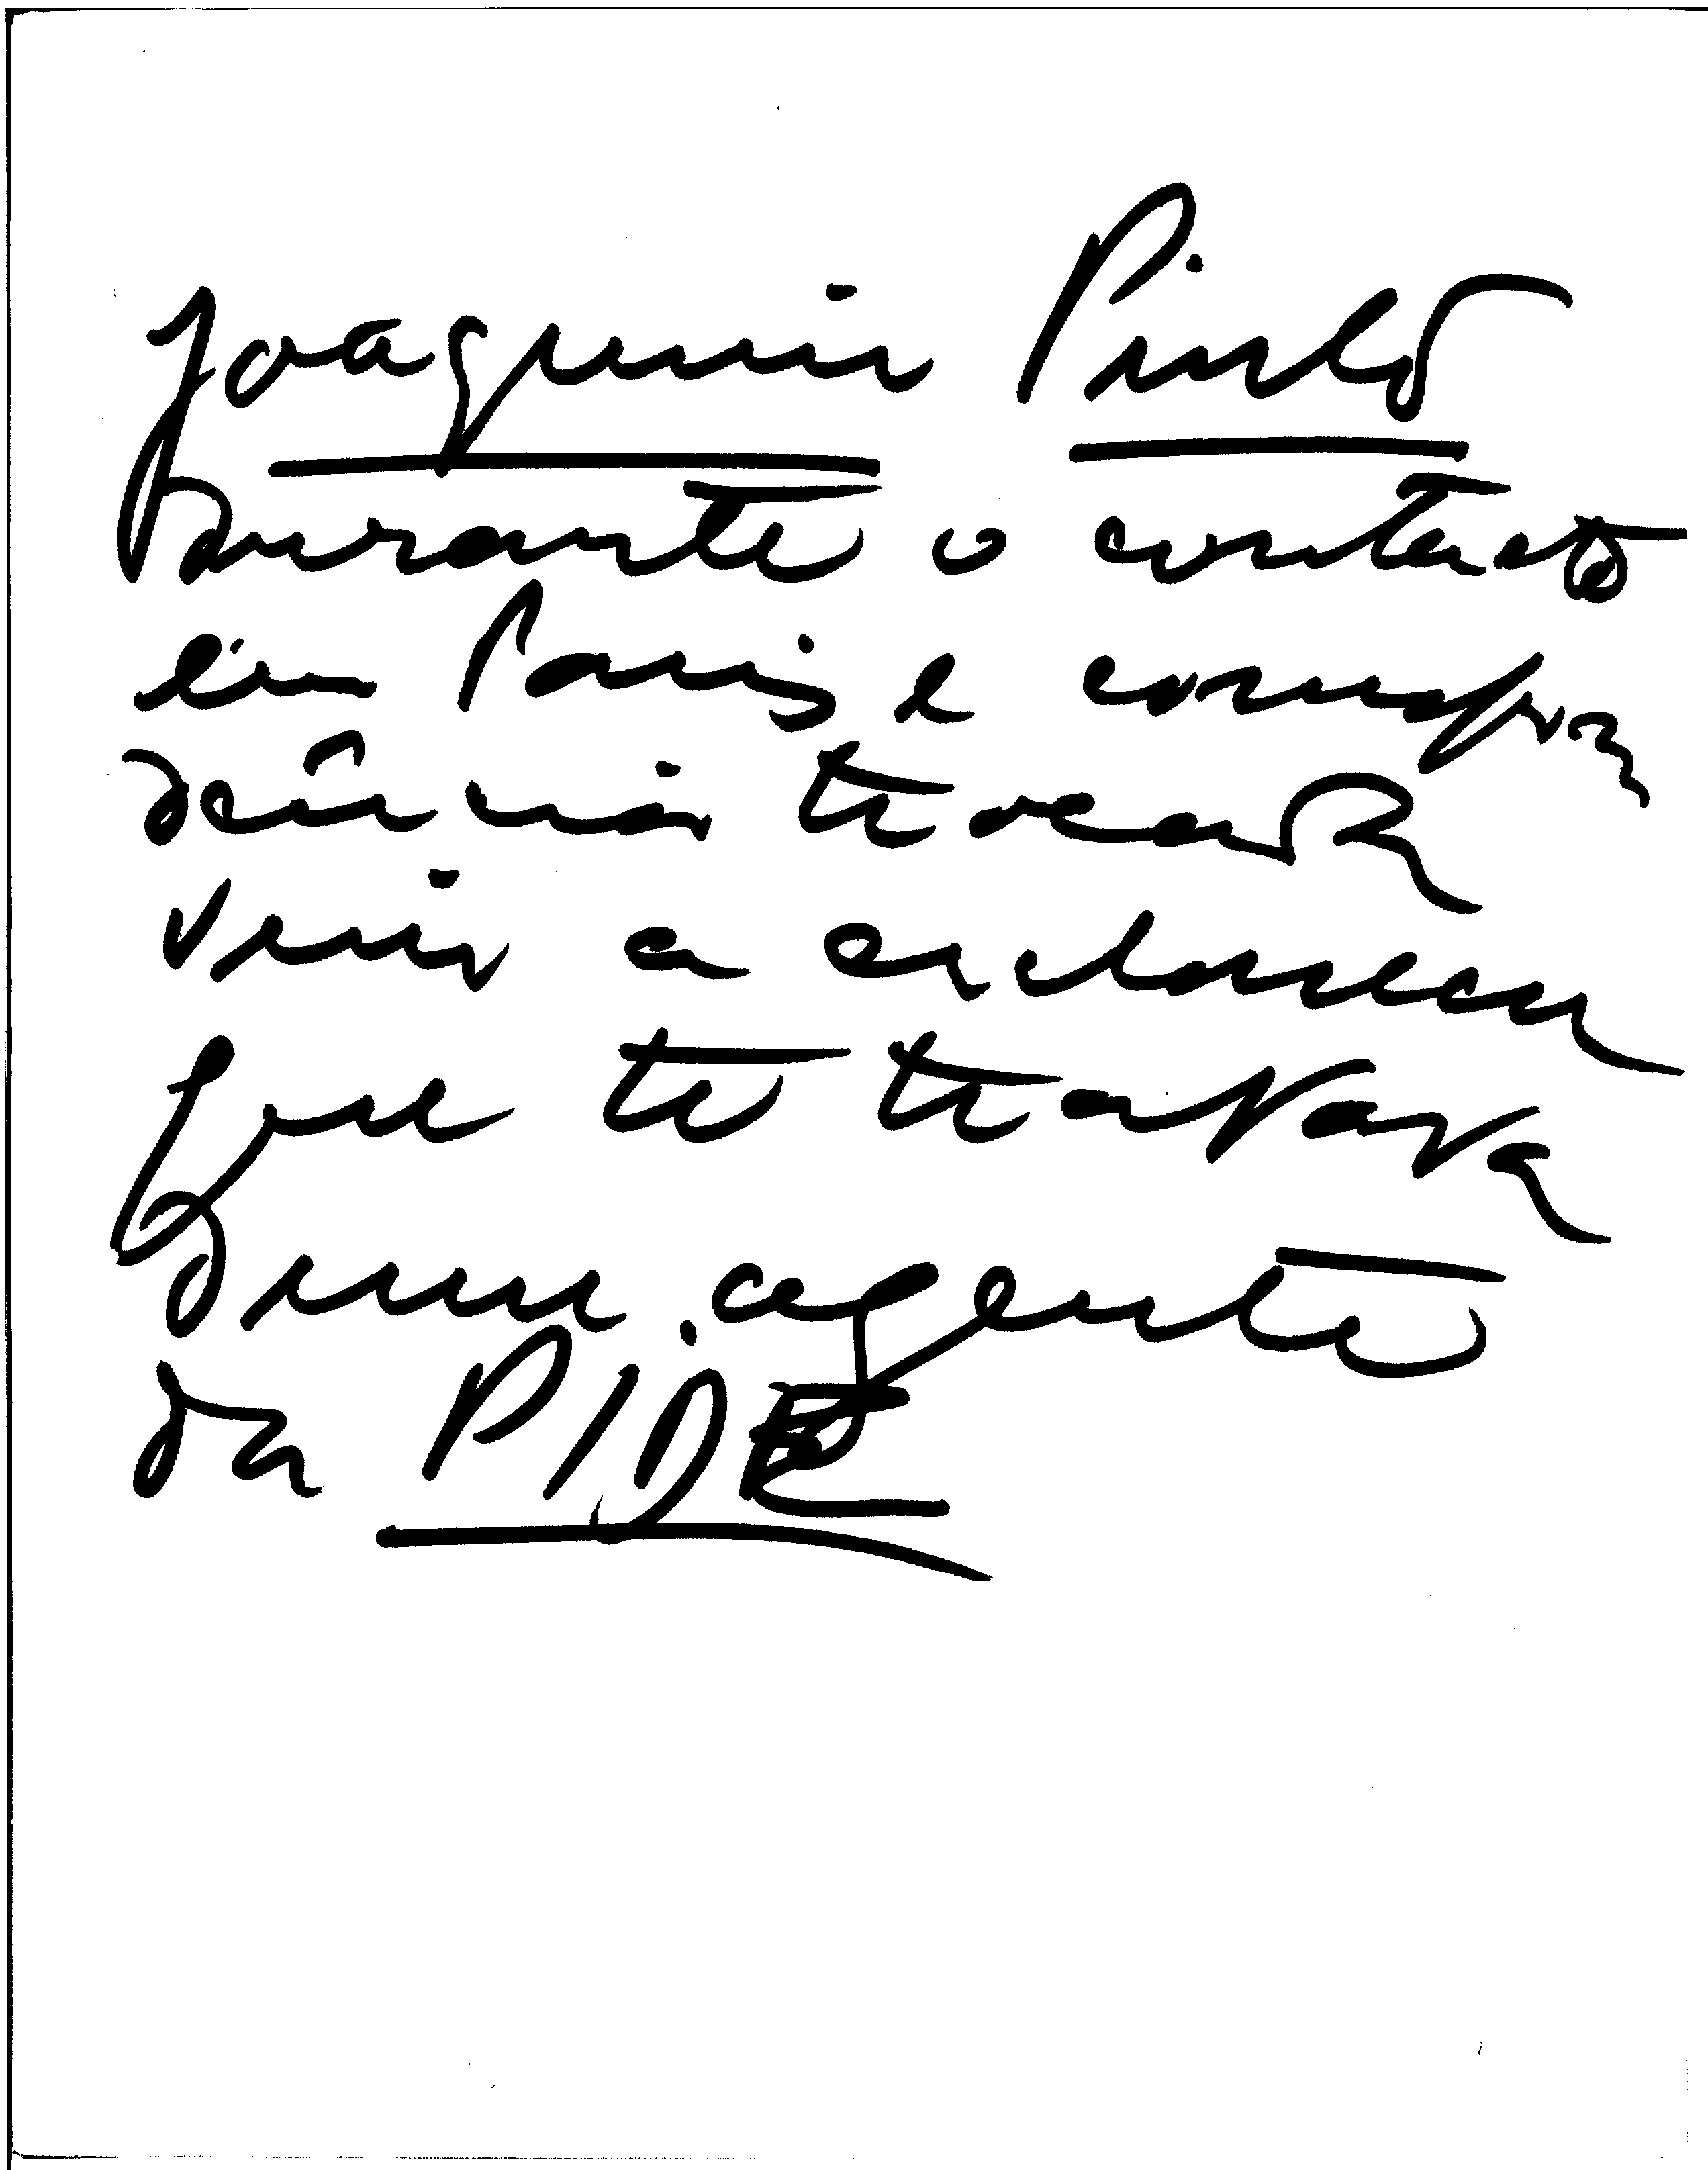 Joaquim Pinto
Durante o contacto
em Paris e correspon
dência trocada
veio a esclarecer
que se tratava
dum agente
da PIDE